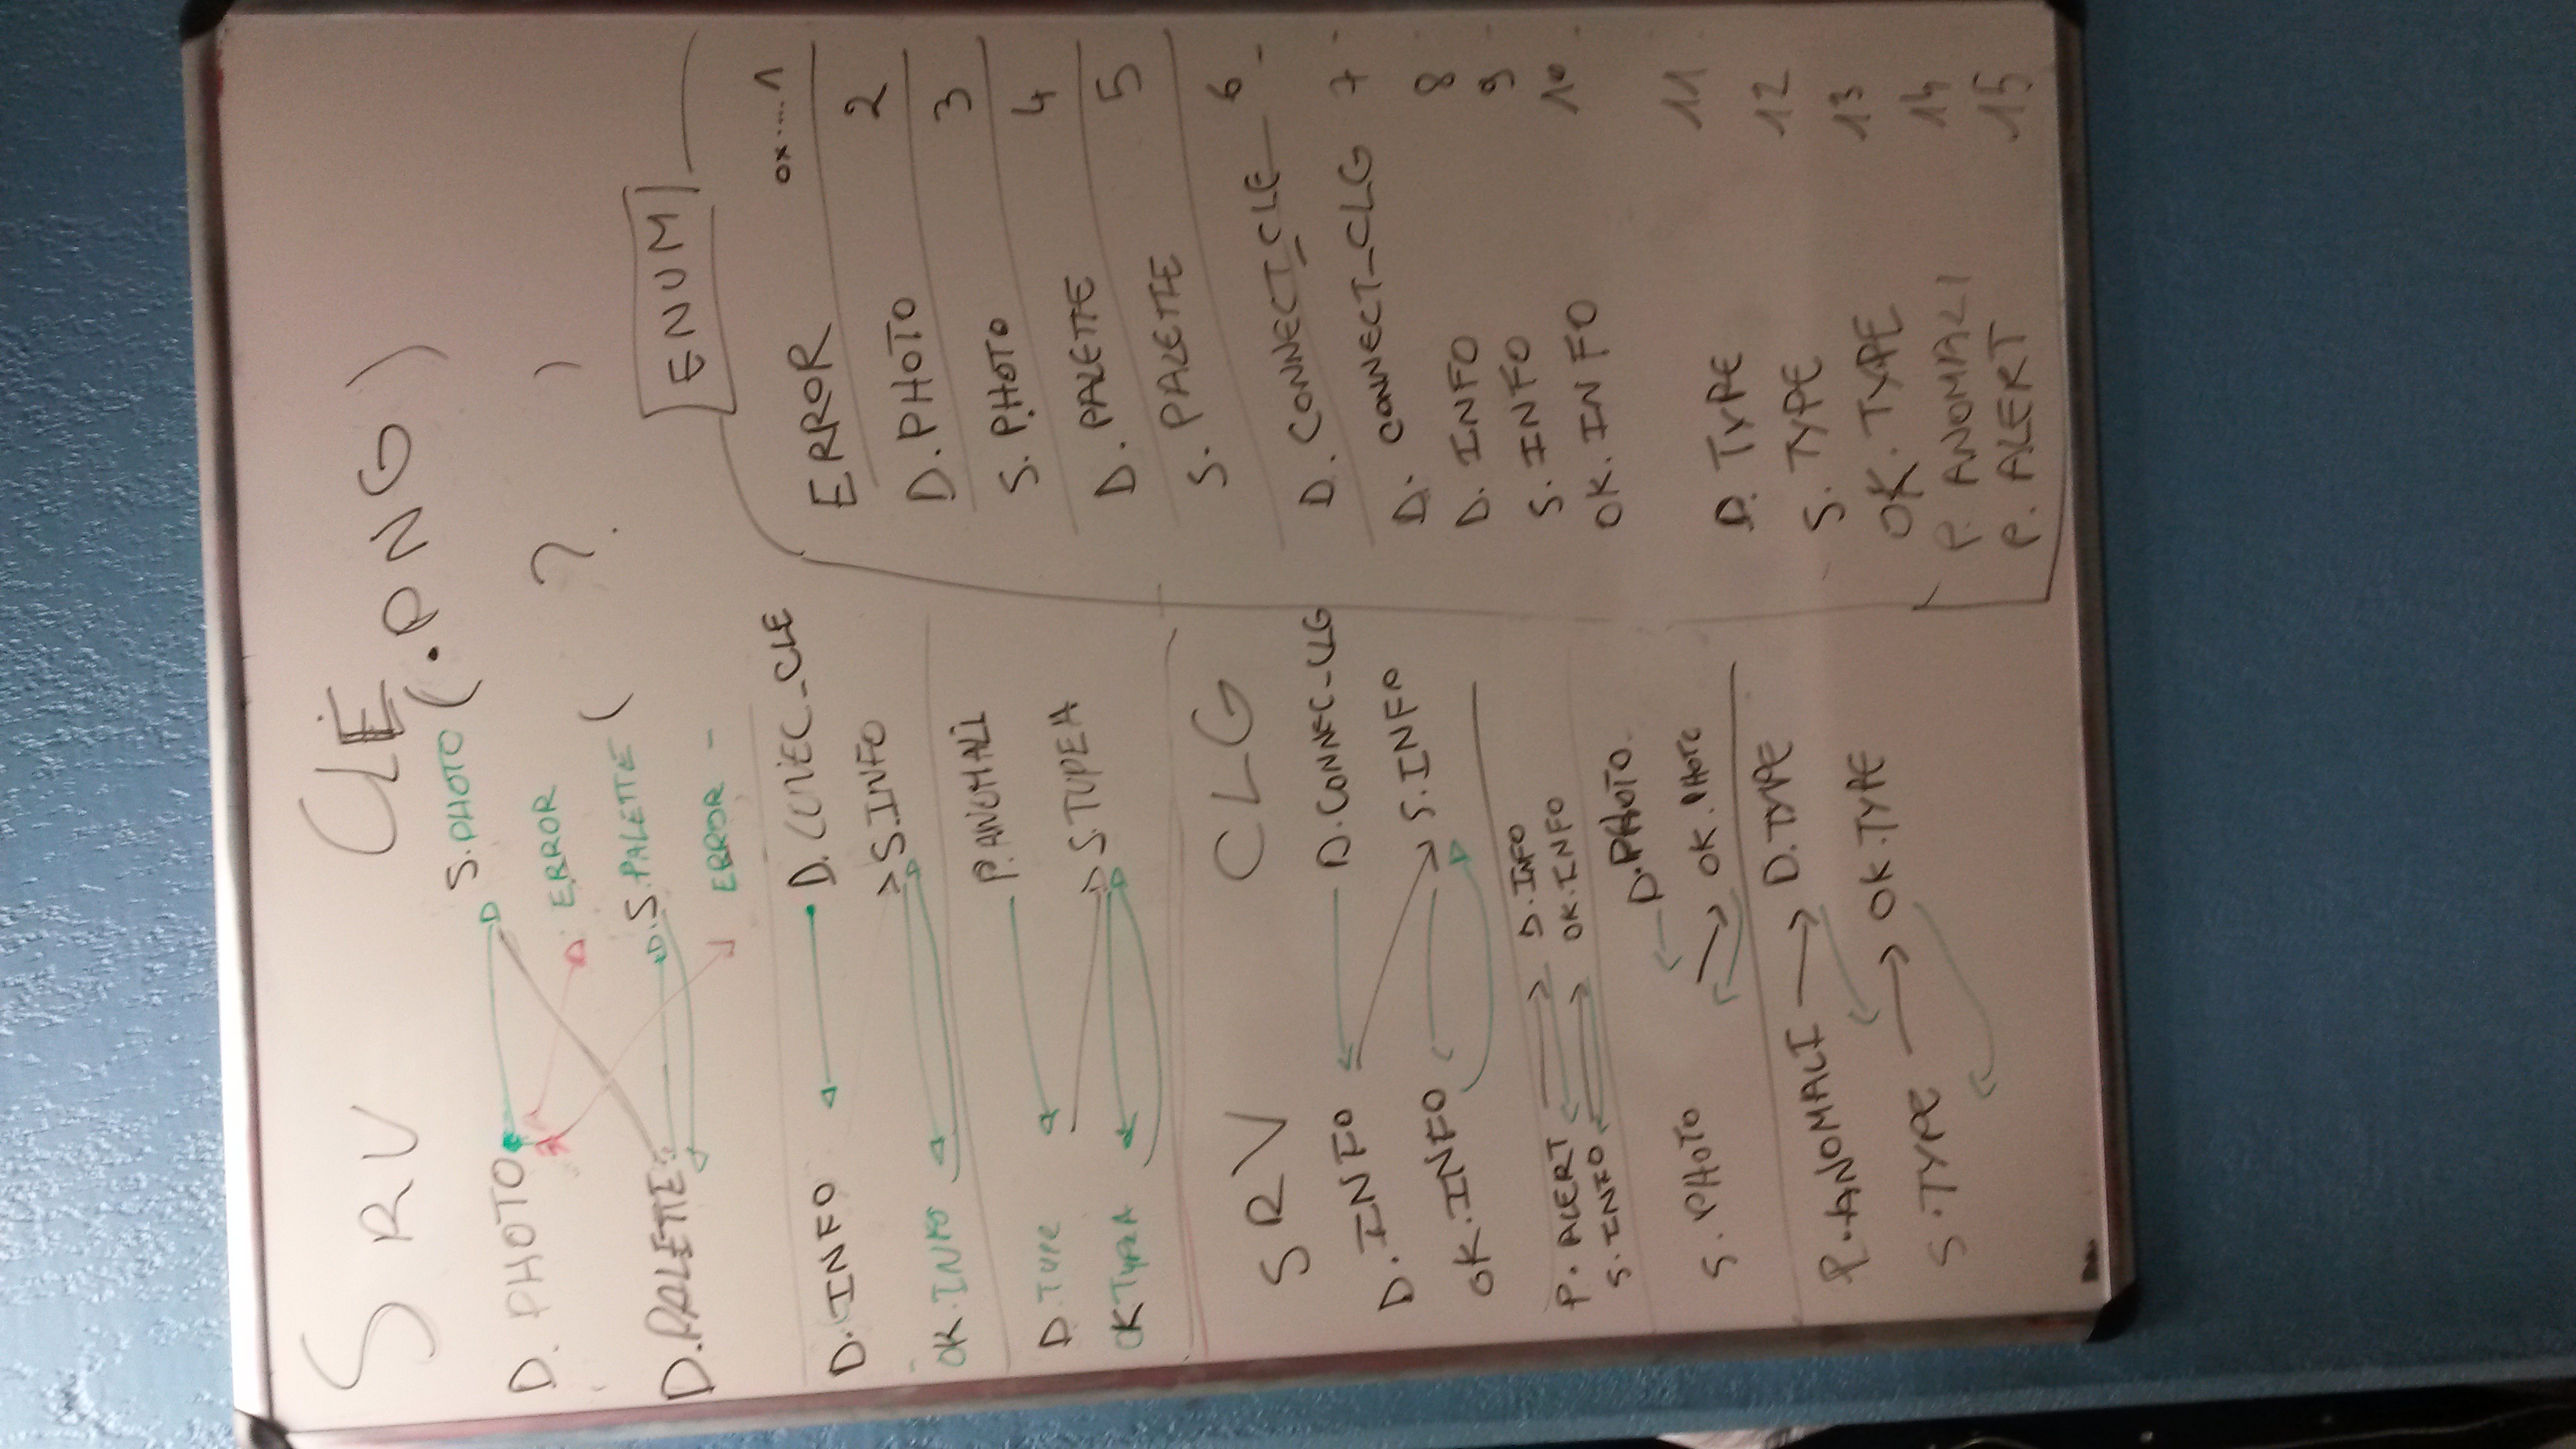 SRV CLE
S.PHOTO (.PNG)
D. PHOTO
ERROR
S.PALETTE ( ? )
D.PALETTE
ERROR -
D. INFO D. CONEC_CLE
S.INFO
OK.INFO
P.ANOMALI
D.TYPE
S.TYPEA
OK TYPEA
SRV CLG
D.INFO D.CONNEC-CLG
OK.INFO S.INFO
P. ALERT D.INFO
S.INFO OK.INFO
D.PHOTO
S. PHOTO OK.PHOTO
P.ANOMALI D.TYPE
S.TYPE OK.TYPE
ENUM
ERROR 0x....1
D. PHOTO 2
S. PHOTO 3
D. PALETTE 4
S. PALETTE 5
D. CONNECT_CLE 6
D. CONNECT_CLG 7
D. INFO 8
S. INFO 9
OK. INFO 10
D. TYPE 11
S. TYPE 12
OK. TYPE 13
P. ANOMALI 14
P. ALERT 15